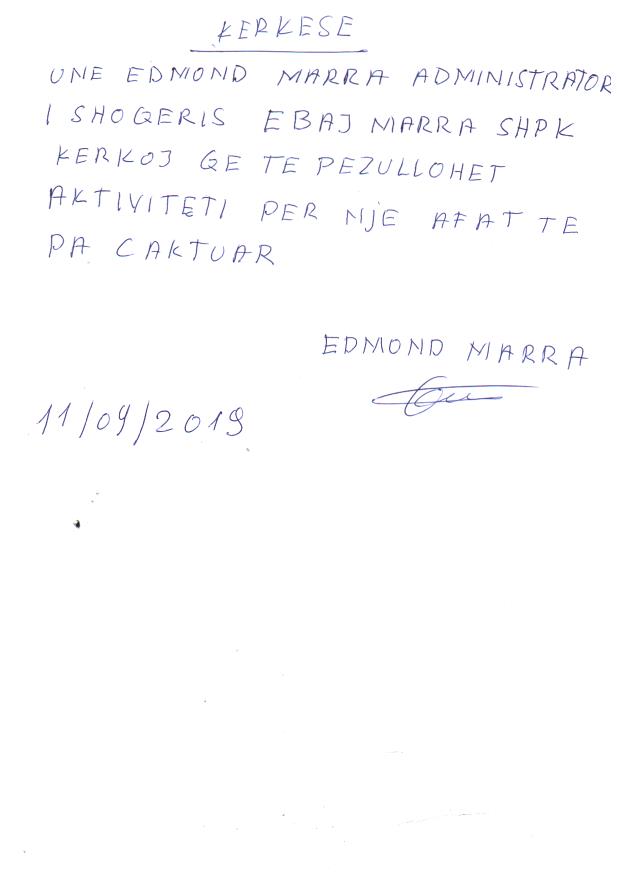 KERKESE
UNE EDMOND MARRA ADMINISTRATOR
I SHOQERIS EBAJ MARRA SHPK
KERKOJ QE TE PEZULLOHET
AKTIVITETI PER NJE AFAT TE
PA CAKTUAR
EDMOND MARRA
11/09/2019